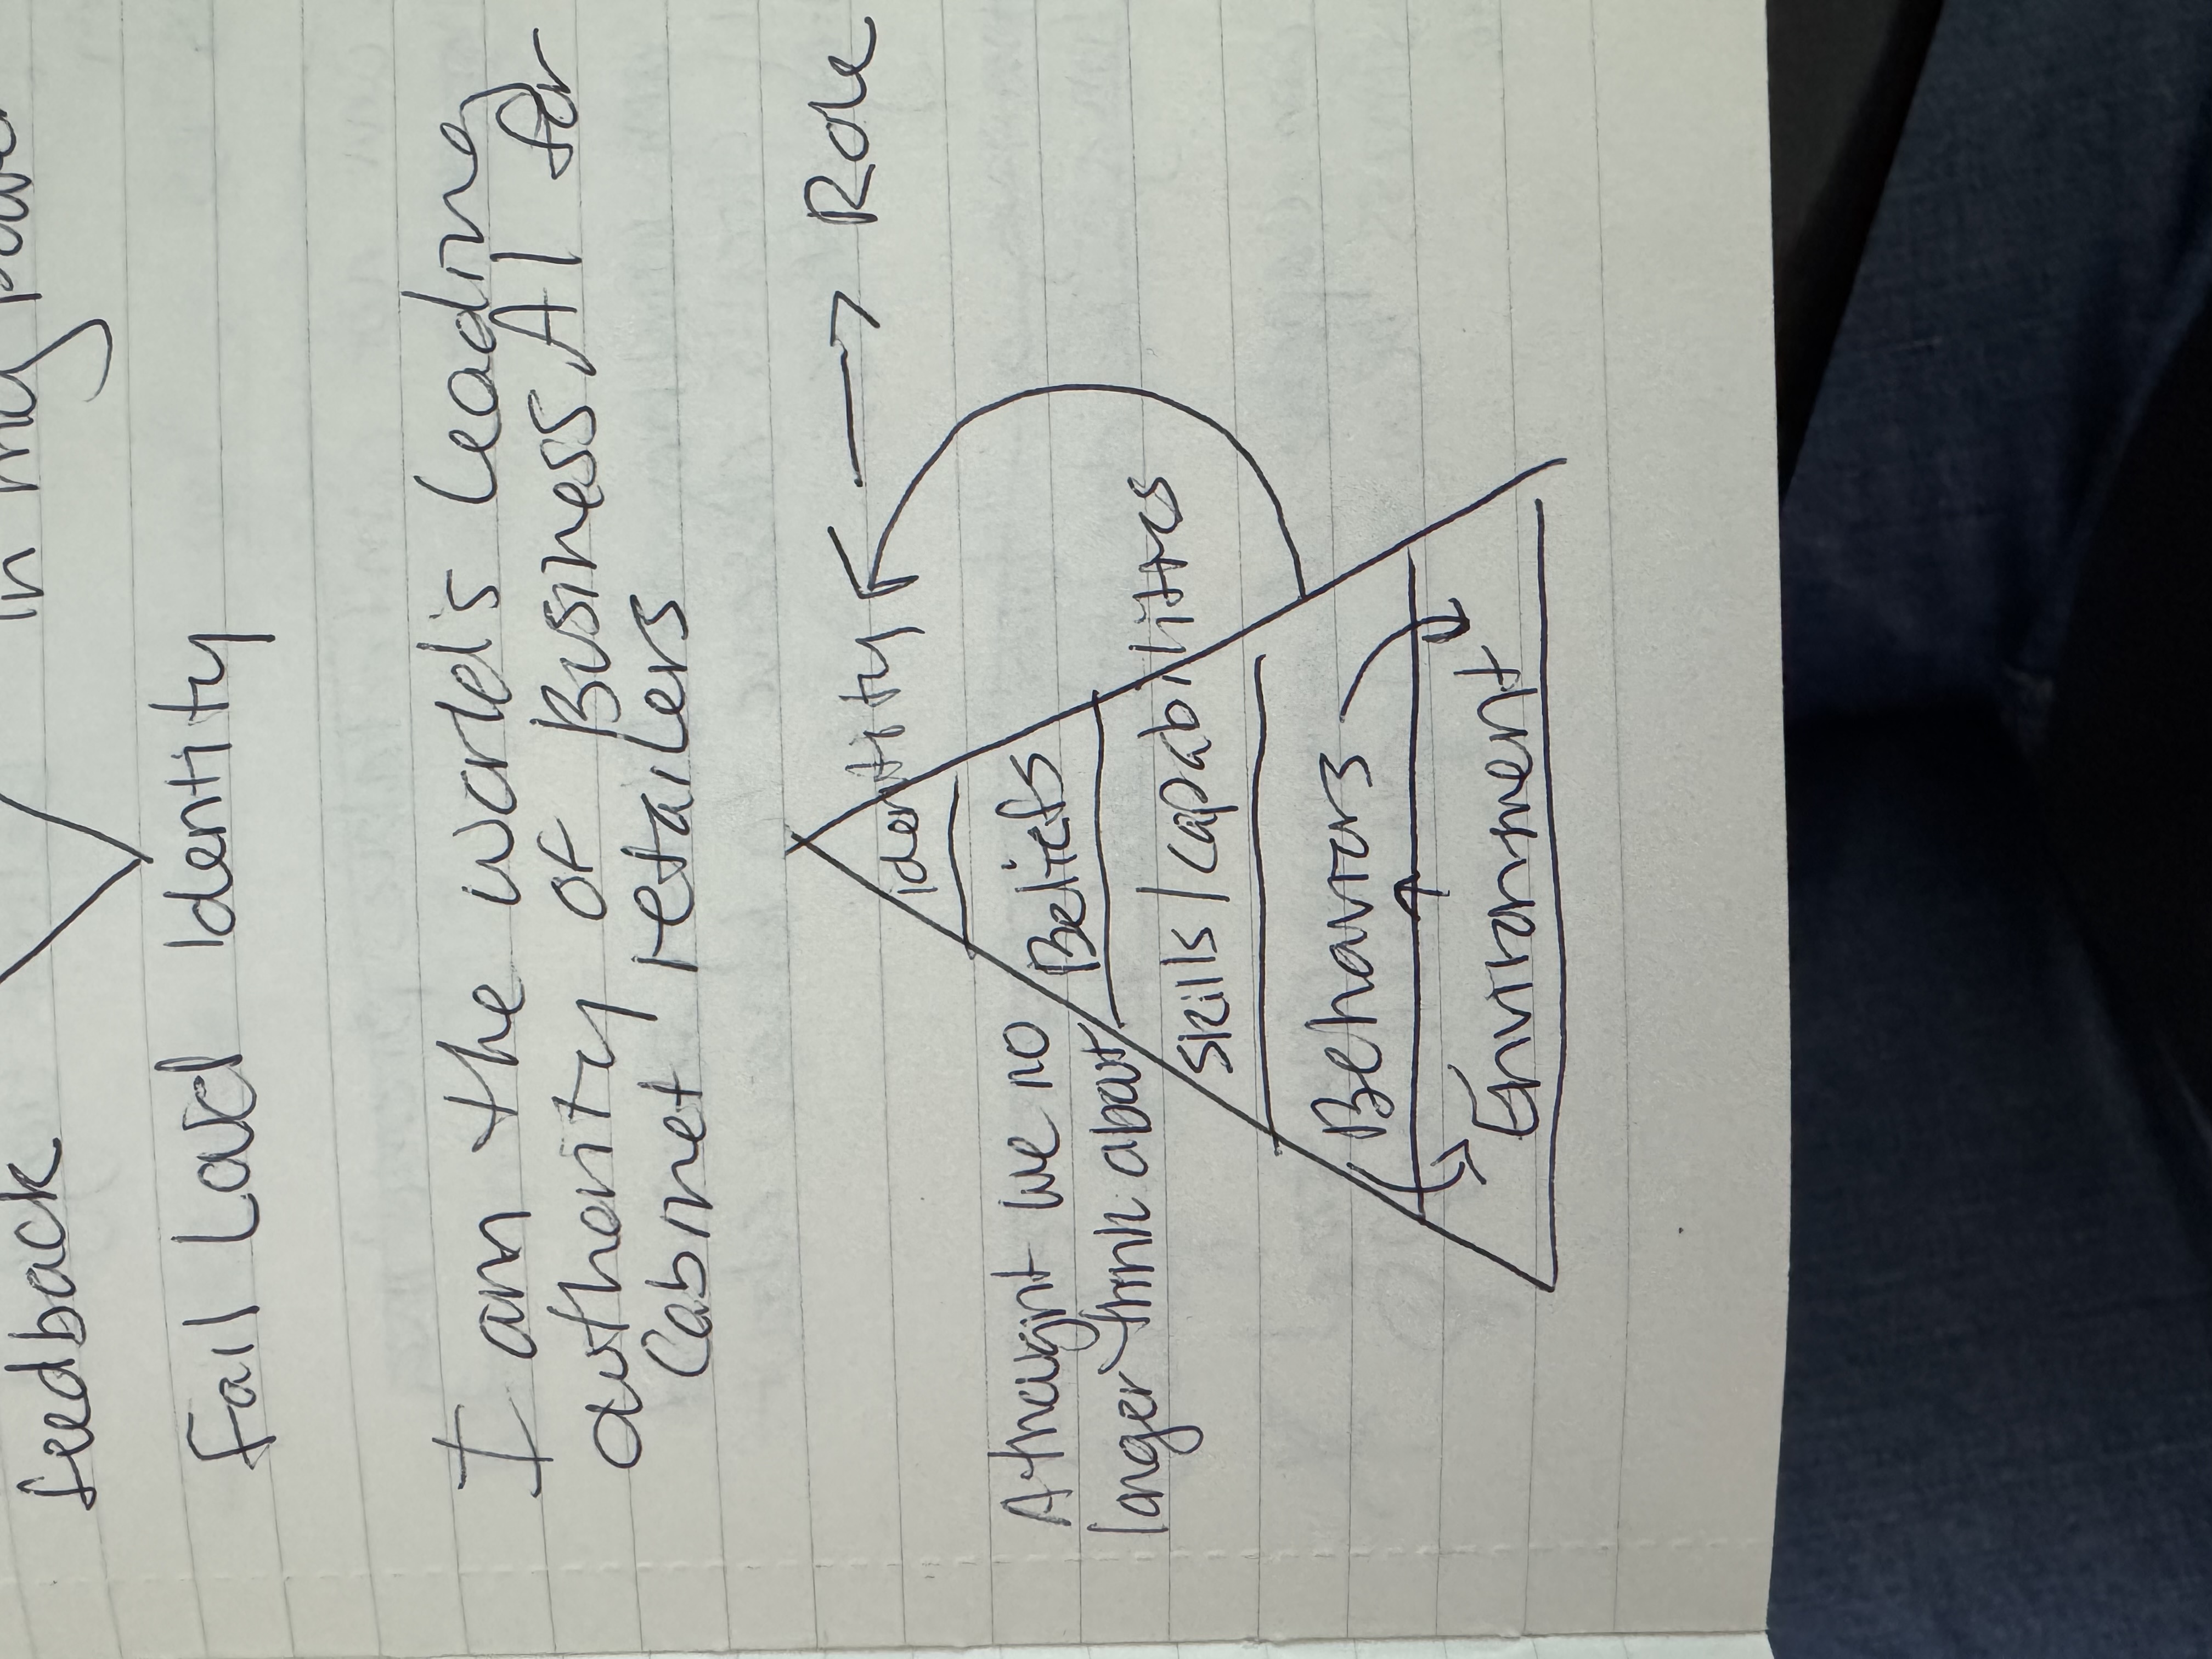 in my
feedback
Fail Loud Identity
I am the world's Leading
authority of Business AI for
Cabinet retailers
identity → Role
A thought we no
longer think about
Beliefs
Skills / Capabilities
Behaviors
Environment